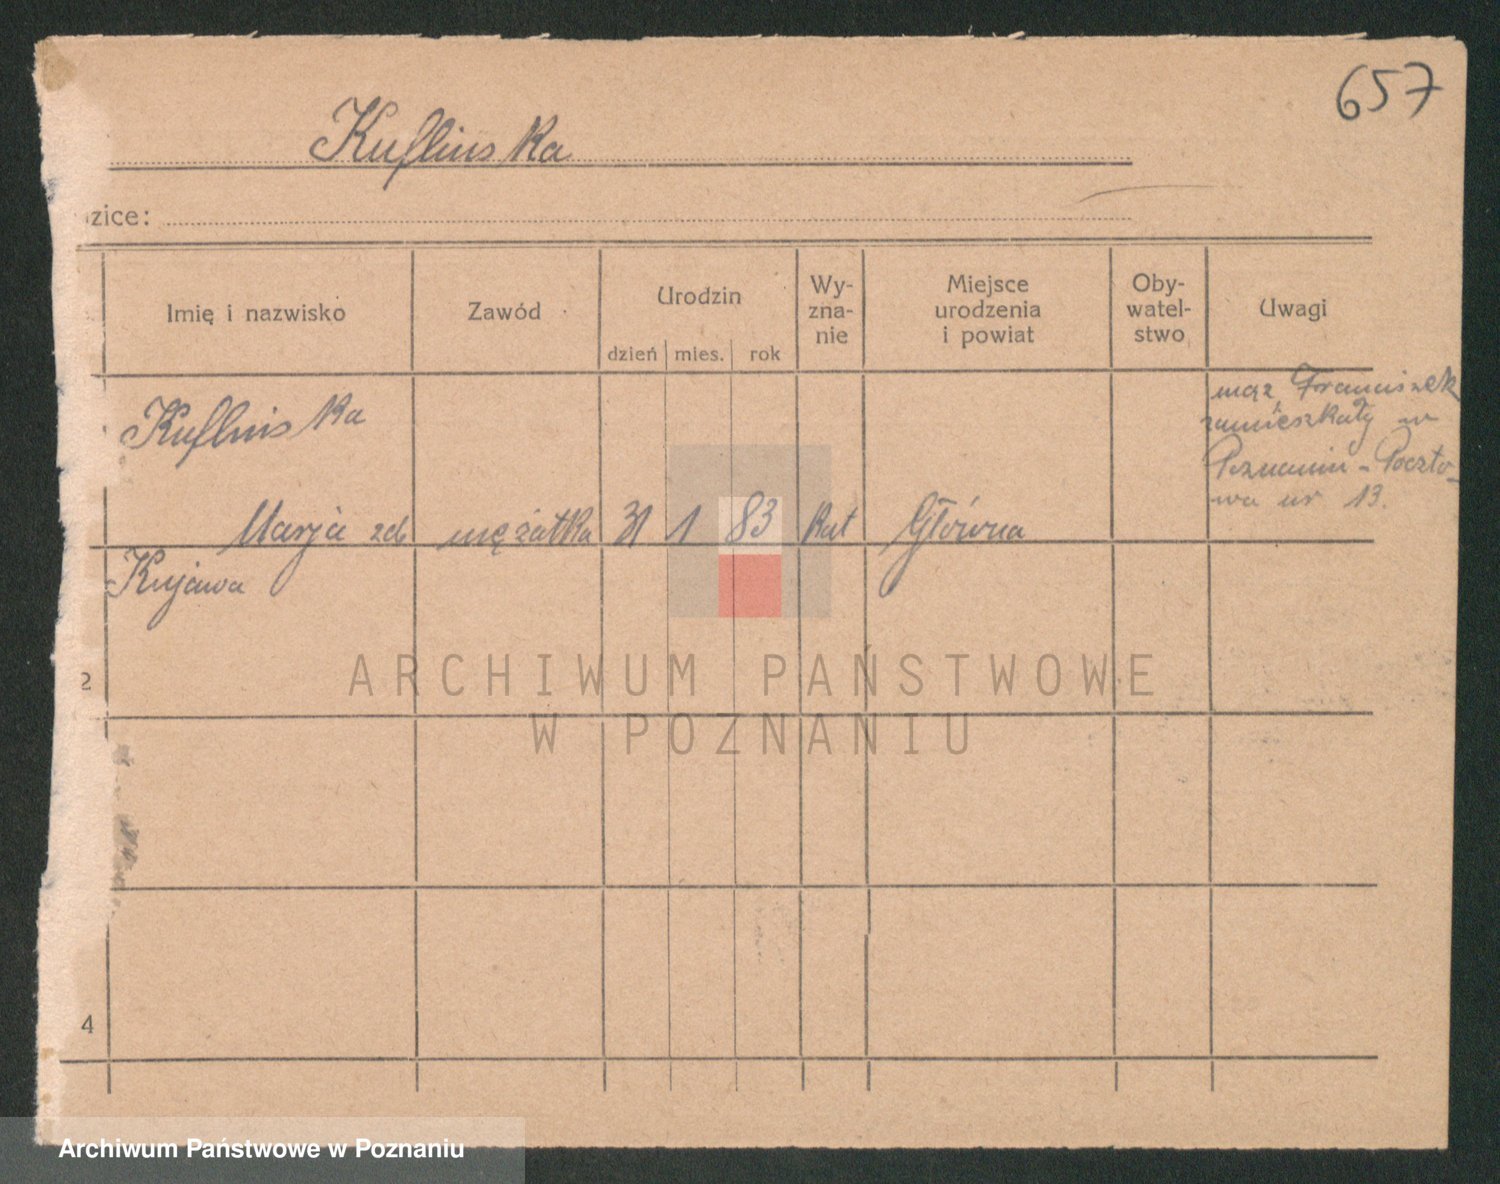 657
Kuflinska
zice:
Imię i nazwisko
Zawód
Urodzin
dzień mies. rok
Wy-
zna-
nie
Miejsce
urodzenia
i powiat
Oby-
watel-
stwo
Uwagi
Kuflinska
Marja zd. mężatka 31 1 83 kat Główna
Kujawa
mąż Franciszek
zamieszkały w
Poznaniu - Poczto-
wa nr 13.
2
4
ARCHIWUM PAŃSTWOWE
W POZNANIU
Archiwum Państwowe w Poznaniu